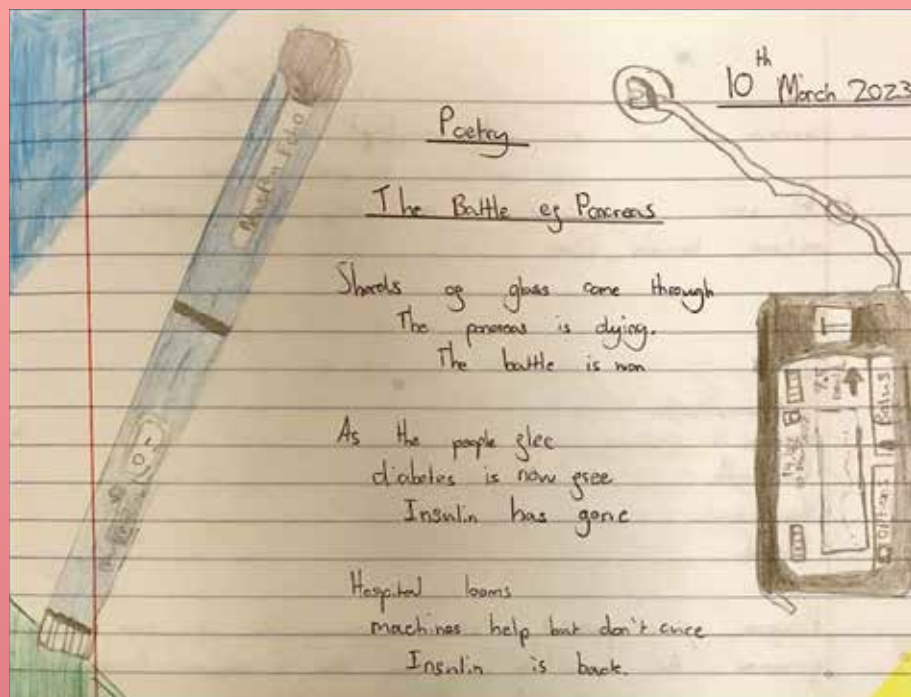 10th March 2023
Poetry
The Battle of Pancreas
Shards of glass come through
The pancreas is dying.
The battle is won
As the people flee
diabetes is now free
Insulin has gone
Hospital looms
machines help but don't cure
Insulin is back.
NovoPen Echo
Options
Bolus